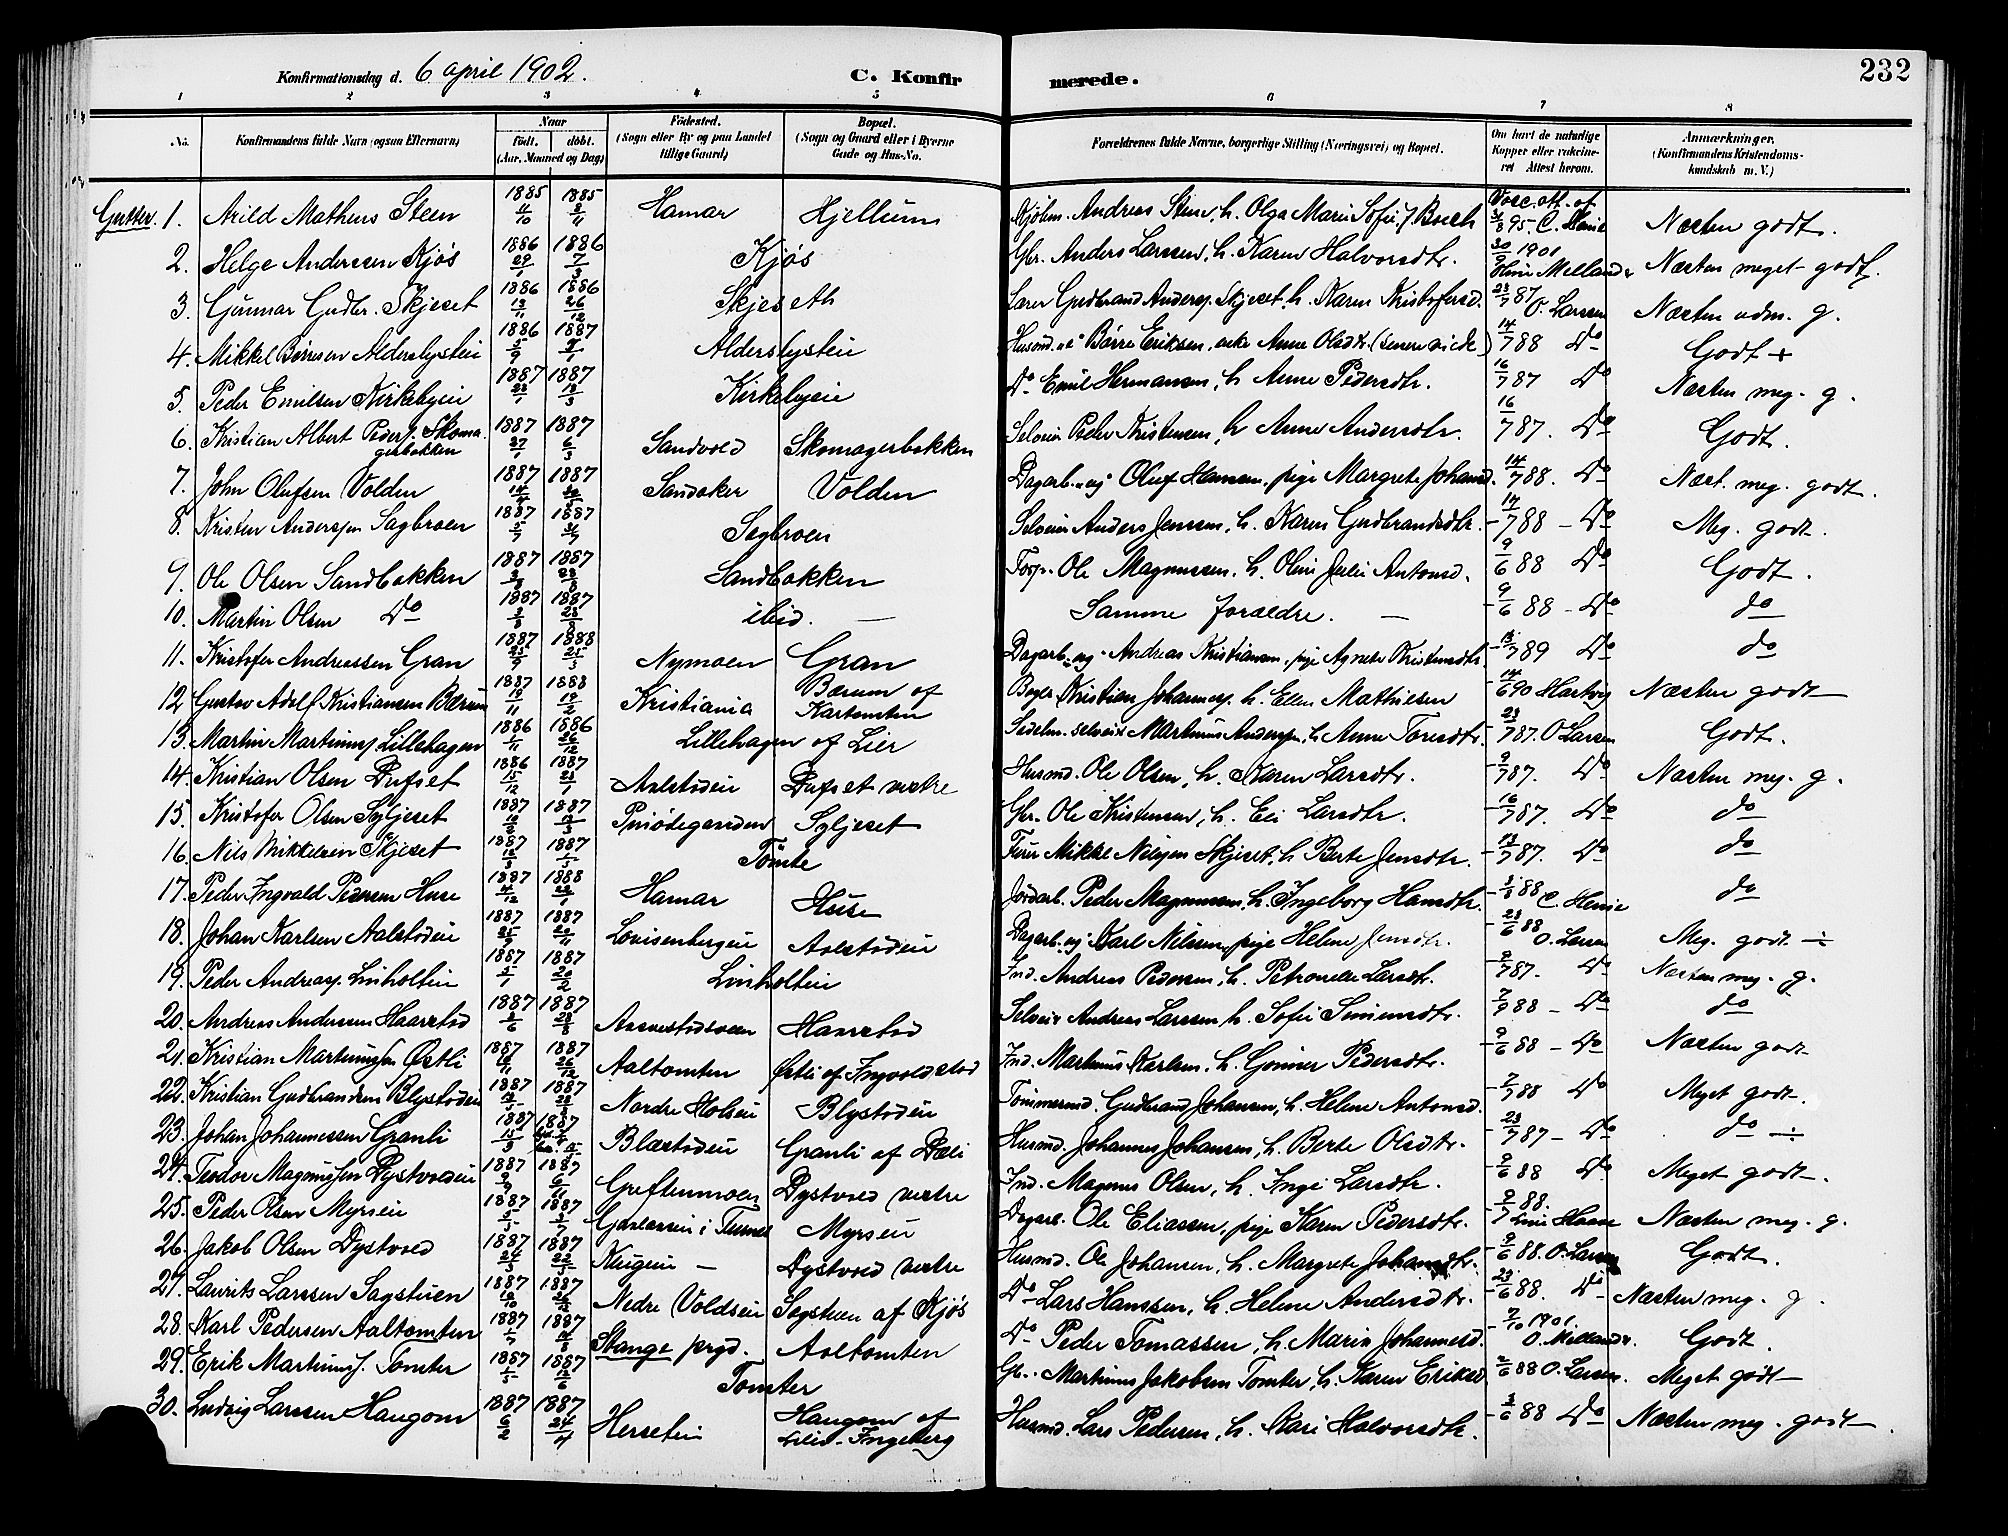 232
Konfirmationsdag d. 6 april 1902. C. Konfirmerede.
1 2 3 4 5 6 7 8
No. Konfirmandens fulde Navn (ogsaa Efternavn) Naar født. døbt. (Aar, Maaned og Dag) Fødested. (Sogn eller By og paa Landet tillige Gaard) Bopæl. (Sogn og Gaard eller i Byerne Gade og Hus-No. Forældrenes fulde Navne, borgerlige Stilling (Næringsvei) og Bopæl. Om havt de naturlige Kopper eller vakcineret. Attest herom. Anmærkninger. (Konfirmandens Kristendomskundskab m. V.)
Gutter. 1. Arild Matheus Steen 1885 11/10 1885 Hamar Hjellum Andreas Steen, h. Olga Marie Sofie Vacc. att. af 31/8 95 C. Heuie Næsten godt.
2. Helge Anderssen Kjøs 1886 29/1 1886 7/3 Kjøs Gbr. Anders Larssen, h. Karen Halvorsdtr. 30/9 1901 Næsten meget godt.
3. Gunnar Gudbr. Skjeset 1886 1886 26/12 Skjeseth Lærer Gudbrand Anders. Skjeset, h. Karen Kristofersd. 87 O. Larsen Næsten udm. g.
4. Mikkel Børresen Alderslysteie 1886 5/9 1887 Alderslysteie Husmd. Børre Eriksen, enke Anne Olsdtr. 14/7 88 Do Godt +
5. Peder Emilsen Kirkebyeie 1887 23/1 1887 Kirkebyeie Do Emil Hermansen, h. Anne Pedersdtr. 16/7 87 Do Næsten meg. g.
6. Kristian Albert Peders. Skomagerbakken 1887 27/1 1887 6/3 Sandvold Skomagerbakken Selveier Peder Kristensen, h. Anne Andersdtr. 16/7 87. Do Godt.
7. John Olufsen Volden 1887 14/4 1887 Sandaker Volden Dagarb. ug. Oluf Hansen, pige Margrete Johansd. 14/7 88. Do Næst. meg. godt.
8. Kristen Anderssen Sagbroen 1887 5/7 1887 31/7 Sagbroen Selveier Anders Jenssen, h. Karen Gudbrandsdtr. 14/7 88 Do Meg. godt.
9. Ole Olsen Sandbakken 1887 1887 28/8 Sandbakken Ole Magnussen, h. Oline Julie Antonsd. 9/6 88 Do Godt.
10. Martin Olsen Do 1887 1887 28/8 ibid. Samme forældre. 9/6 88 Do do
11. Kristofer Andreassen Gran 1887 25/9 1888 25/3 Nymoen Gran Dagarb. ug. Andreas Kristiansen, pige Agnete Kristensdtr. 89 Do do
12 Gustav Adolf Kristiansen Bærum 1887 1888 Kristiania Bærum af Kartomten Bager Kristian Johanness. h. Ellen Mathiesen 14/6 90 Hartvig Næsten godt
13. Martin Martinus. Lillehagen 1886 1/11 1886 26/12 Lillehagen af Lier Martinus Anderssen, h. Anne Toresdtr. 23/7 87. O. Larsen Godt.
14. Kristian Olsen Dufset 1886 15/12 1887 23/1 Aalstødeie Dufset vestre Husmd. Ole Olsen, h. Karen Larsdtr. 9/7 87. Do Næsten meg. g.
15. Kristofer Olsen Syljeset 1887 1887 Syljeset Gbr. Ole Kristensen, h. Eli Larsdtr. 16/7 87. Do do
16. Nils Mikkelsen Skjeset 1887 1887 Tomte Mikkel Nilssen Skjeset, h. Berte Jensdtr. 87. Do do
17. Peder Ingvald Pedersen Huse 1887 4/12 1888 22/1 Hamar Huse Jordarb. Peder Magnussen, h. Ingeborg Hansdtr. 88 C. Heuie do
18. Johan Karlsen Aalstødeie 1887 25/9 1887 20/11 Louisenbergeie Aalstødeie Dagarb. ug. Karl Nilssen, pige Helene Jensdtr. 23/6 88 O. Larsen Meg. godt ÷
19. Peder Andreas. Linholteie 1887 1887 20/2 Linholteie Ind. Andreas Pedersen, h. Petronelle Larsdtr. 87. Do Næsten meg. g.
20. Andreas Andersen Haarstad 1887 1887 Haarstad Selveier Andreas Larssen, h. Sofie Simensdtr. 88 Do do
21. Kristian Martinussen Østli 1887 1887 26/12 Aaltomten Østli af Ingvoldstad Ind. Martinus Karlsen, h. Gunner Pedersdtr. 9/6 88 Do Næsten godt
22. Kristian Gudbrandsen Blystødeie 1887 1887 Nordre Holseie Blystødeie Tømmermd. Gudbrand Johansen, h. Helene Antonsd. 88 Do Meget godt.
23. Johan Johannessen Granli 1887 15/3 1887 Blæstødeie Granli af Dæli Husmd. Johannes Johansen, h. Berte Olsdtr. 23/7 87 Do do ÷
24. Teodor Magnussen Dystvoldeie 1887 1887 6/11 Greftenmoen Dystvold vestre Ind. Magnus Olsen, h. Inge Larsdtr. 88 Do Meget godt.
25. Peder Olsen Myrseie 1887 1887 Myrseie Dagarb. Ole Eliassen, pige Karen Pedersdtr. 88. Næsten meg. g.
26. Jakob Olsen Dystvold 1887 24/3 1887 22/5 Dystvold vestre Husmd. Ole Johansen, h. Margrete Johansdtr. 9/6 88. O. Larsen Godt.
27. Laurits Larssen Sagstuen 1887 1887 Nedre Voldseie Sagstuen af Kjøs Do Lars Hanssen, h. Helene Andersdtr. 23/6 88. Do Næsten meg. g.
28. Karl Pedersen Aaltomten 1887 1887 Stange prgd. Aaltomten Do Peder Tomassen, h. Marie Johannesd. 7/10 1901. Godt.
29. Erik Martinus. Tomter 1887 1/5 1887 12/6 Tomter Gb. Martinus Jakobsen Tomter, h. Karen Eriksd. 88 O. Larsen. Meget godt
30. Ludvig Larssen Haugom 1887 6/2 1887 24/4 Herseteie Haugom af Ingeberg Husmd. Lars Pedersen, h. Kari Halvorsdtr. 88 Do Næsten meg. godt